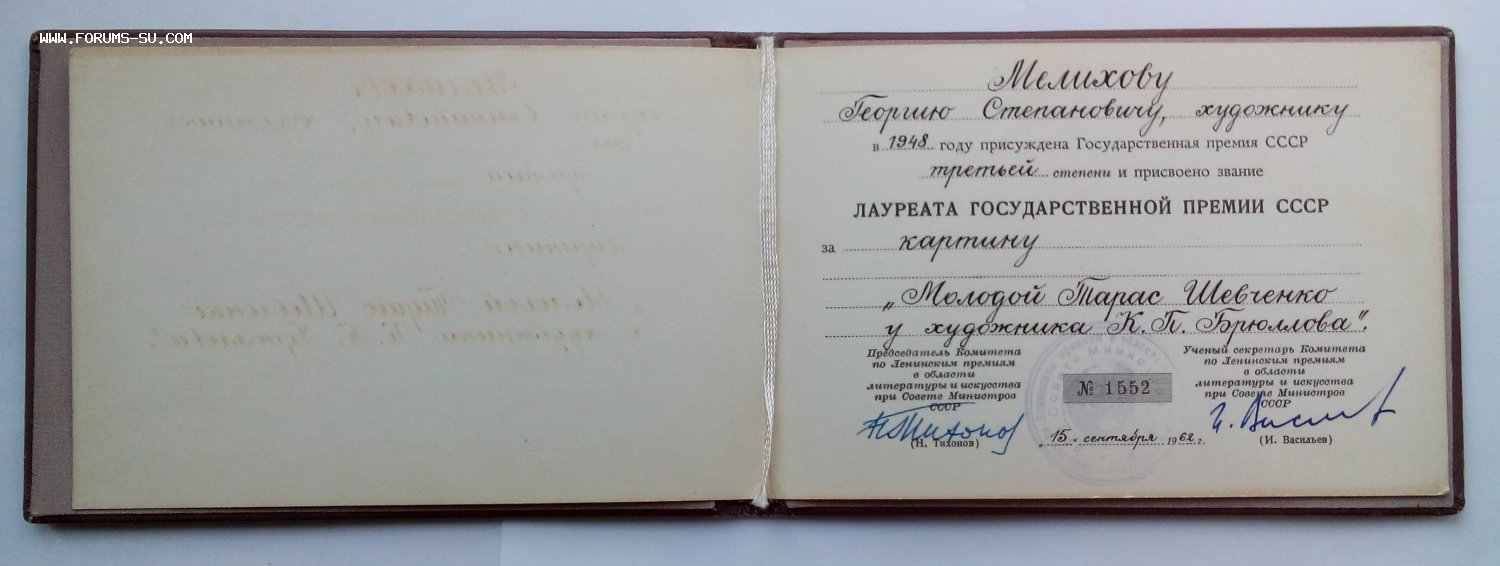 WWW.FORUMS-SU.COM
Мелихову
Георгию Степановичу, художнику
в 1948 году присуждена Государственная премия СССР
третьей степени и присвоено звание
ЛАУРЕАТА ГОСУДАРСТВЕННОЙ ПРЕМИИ СССР
за картину
„Молодой Тарас Шевченко
у художника К. П. Брюллова".
Председатель Комитета
по Ленинским премиям
в области
литературы и искусства
при Совете Министров
СССР
(Н. Тихонов)
№ 1552
„15" сентября 1962 г.
Ученый секретарь Комитета
по Ленинским премиям
в области
литературы и искусства
при Совете Министров
СССР
(И. Васильев)